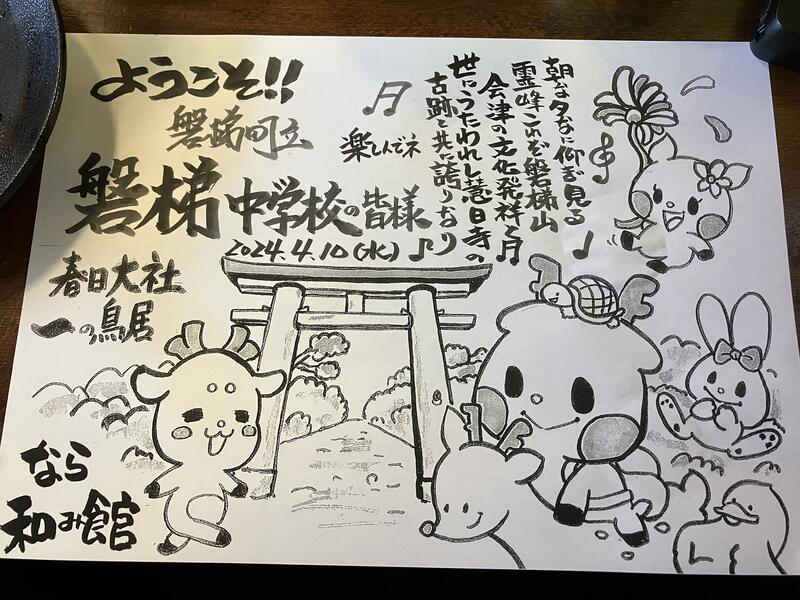 ようこそ!!
磐梯町立
磐梯中学校の皆様
2024.4.10(水)
楽しんでネ
朝な夕なに仰ぎ見る
霊峰これぞ磐梯山
会津の文化発祥と
世にうたわれし慧日寺の
古跡と共に誇りなり
春日大社
一の鳥居
なら
和み館